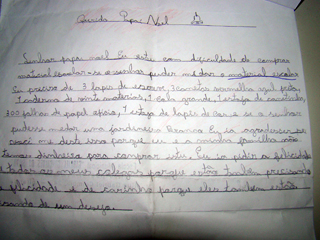 Querido Papai Noel
Senhor papai noel Eu estou com dificuldade de comprar
material escolar se o senhor puder me dar o material escolar
Eu preciso de 3 lapis de escrever, 3 canetas vermelha azul preta,
1 caderno de 20 materias, 1 cola grande, 1 estojo de canetinha,
300 folhas de papel oficio, 1 estojo de lapis de cor e se o senhor
puder me dar um jardineiro branco Eu ia agradecer se
você me desse isso porque eu e a minha familha não
temos dinheiro para comprar isto. Eu ia pidir a felicidade
total aos meus colegas porque estão também precisando
felicidade e de carinho porque eles tambem estão
de um desejo.